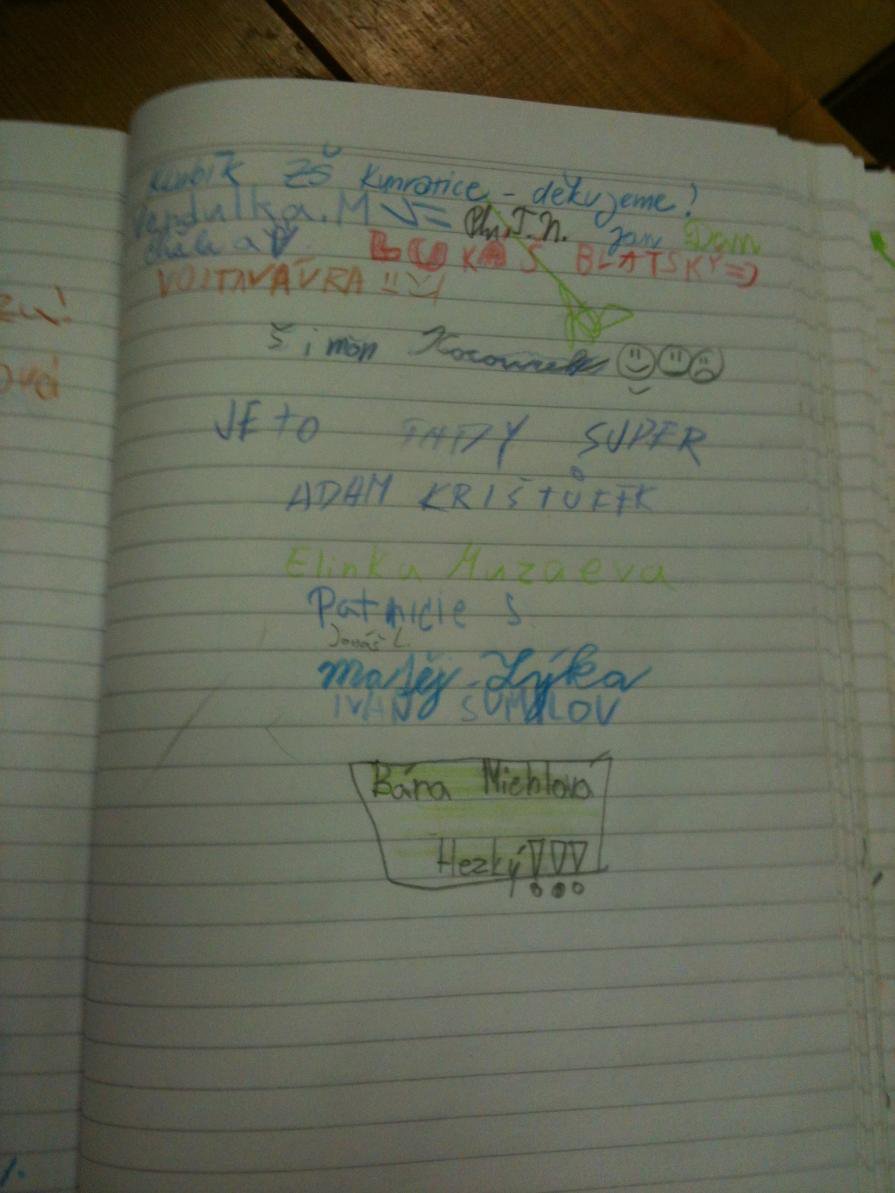 zu!
ová
Klubík ZŠ Kunratice - děkujeme!
Vendulka.M
Jan Dan
LUKÁŠ BLATSKÝ =)
VOJTA VÁVRA
Šimon
JE TO TADY SUPER
ADAM KRIŠTŮFEK
Elinka Muzaeva
Patricie S.
Jonáš L.
Matěj Lýka
IVAN ŠUMILOV
Bára Michlová
Hezký!!!